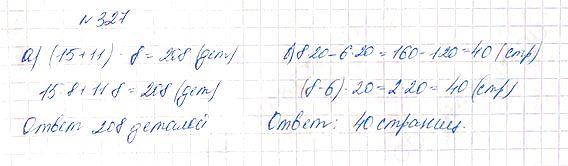 №327
а) (15+11) · 8 = 208 (дет)
15·8+11·8 = 208 (дет)
Ответ 208 деталей
б) 8·20-6·20=160-120=40 (стр)
(8-6)·20=2·20=40 (стр)
Ответ: 40 страниц.